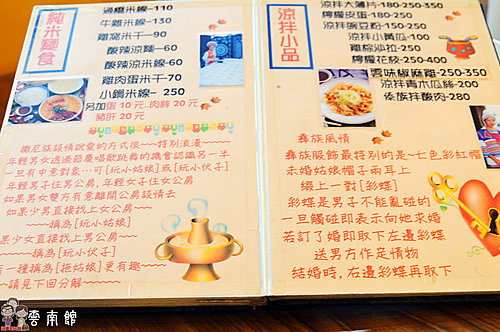 純米麵食
過橋米線~110
牛雜米線~130
雞窩米干~90
酸辣涼麵~60
酸辣涼米線~60
雞肉蛋米干~70
小鍋米線~90
另加蛋 10 元.肉絲 20 元
豬肝 20 元
撒尼族談情說愛的方式很~~特別浪漫~~~
年輕男女透過節慶唱歌跳舞的機會認識另一半
一旦有中意對象…可[玩小姑娘]或[玩小伙子]
年輕男子住男公房,年輕女子住女公房
如果男女雙方有意離開公房談情去
如果少男直接找上女公房~~~
~~~~稱為[玩小姑娘]~~~~
果少女直接找上男公房~~~
~~~~~~稱為[玩小伙子]~~~
有一種稱為[拖姑娘]更有趣~~
~~請見下回分解~~~~
涼拌小品
涼拌大薄片-180-250-350
檸檬皮蛋-180-250
涼拌豌豆粉-150-250
涼拌小黃瓜-100
雞樅沙拉-250
檸檬花枝-250-400
雲味椒麻雞-250-350
涼拌青木瓜絲-200
傣族拌酸肉-280
彝族風情
彝族服飾最特別的是~七色彩紅帽
未婚姑娘帽子兩耳上
綴上一對[彩蝶]
彩蝶是男子不能亂碰的
一旦觸碰即表示向她求婚
若訂了婚即取下左邊彩蝶
送男方作定情物
結婚時,右邊彩蝶再取下
雲南館